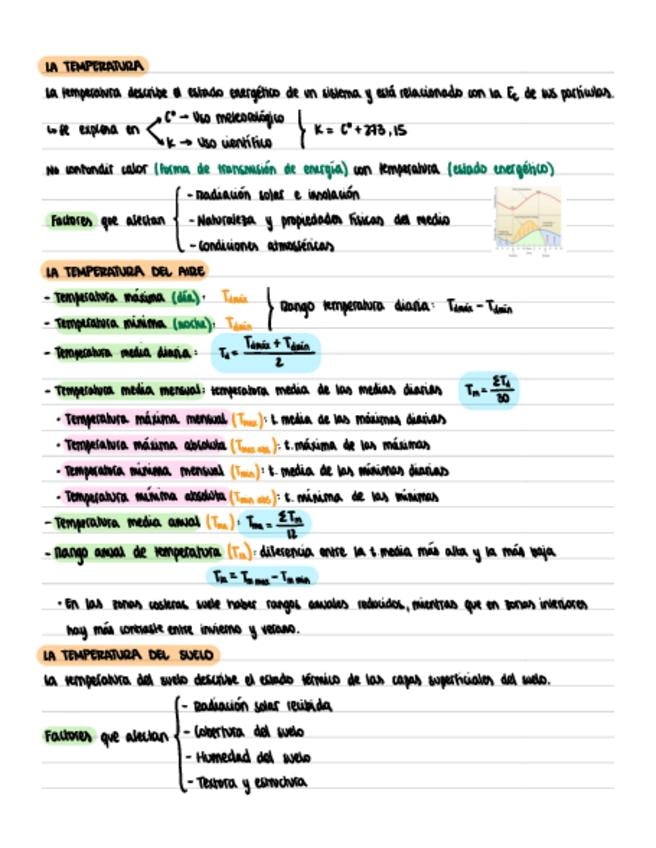 LA TEMPERATURA
La temperatura describe el estado energético de un sistema y está relacionado con la Ec de sus partículas.
↳ se expresa en C° → Uso meteorológico
K → Uso científico
K = C° + 273,15
No confundir calor (forma de transmisión de energía) con temperatura (estado energético)
Factores que afectan
- Radiación solar e insolación
- Naturaleza y propiedades físicas del medio
- Condiciones atmosféricas
LA TEMPERATURA DEL AIRE
- Temperatura máxima (día): Tdmáx
- Temperatura mínima (noche): Tdmín
Rango temperatura diaria: Tdmáx - Tdmín
- Temperatura media diaria: Td = Tdmáx + Tdmín / 2
- Temperatura media mensual: temperatura media de las medias diarias Tm = ΣTd / 30
· Temperatura máxima mensual (Tmax): t. media de las máximas diarias
· Temperatura máxima absoluta (Tmax abs): t. máxima de las máximas
· Temperatura mínima mensual (Tmin): t. media de las mínimas diarias
· Temperatura mínima absoluta (Tmin abs): t. mínima de las mínimas
- Temperatura media anual (Tma): Tma = ΣTm / 12
- Rango anual de temperatura: diferencia entre la t. media más alta y la más baja
= Tm max - Tm min
· En las zonas costeras suele haber rangos anuales reducidos, mientras que en zonas interiores
hay más contraste entre invierno y verano.
LA TEMPERATURA DEL SUELO
La temperatura del suelo describe el estado térmico de las capas superficiales del suelo.
Factores que afectan
- Radiación solar recibida
- Cobertura del suelo
- Humedad del suelo
- Textura y estructura